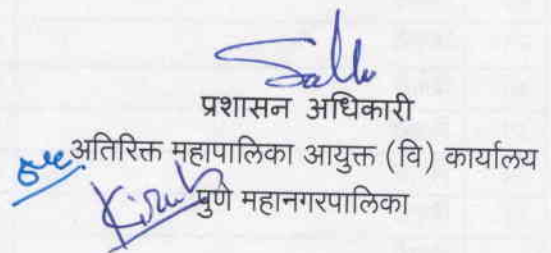 प्रशासन अधिकारी
अतिरिक्त महापालिका आयुक्त (वि) कार्यालय
पुणे महानगरपालिका